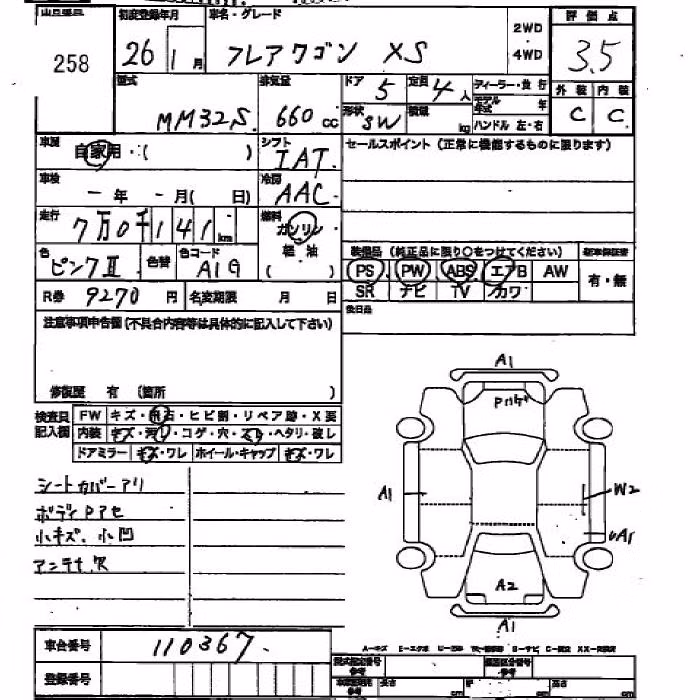 258
初度登録年月 車名・グレード 評価点
26 1月 フレアワゴン XS 2WD 4WD 3.5
型式 排気量 ドア 定員 ディーラー・並行 外装 内装
MM32S 660cc 5 4人 モデル年式 年 C C
形状 SW 積載 kg ハンドル 左・右
車歴 自家用・( ) シフト IAT セールスポイント（正常に機能するものに限ります）
車検 ー年 ー月( 日) 冷房 AAC
走行 7万0千141km 燃料 ガソリン 軽油 ( )
色 ピンクⅡ 色替 色コード A1G
装備品（純正品に限り○をつけてください） 新車保証書
PS PW ABS エアB AW 有・無
SR ナビ TV カワ
R券 9270円 名変期限 月 日
後日品
注意事項申告欄（不具合内容等は具体的に記入して下さい）
修復歴 有（箇所 ）
検査員記入欄 FW キズ・飛石・ヒビ割・リペア跡・X要
内装 キズ・汚れ・コゲ・穴・スレ・ヘタリ・破レ
ドアミラー キズ・ワレ ホイール・キャップ キズ・ワレ
シートカバーアリ
ボディPアセ
小キズ、小凹
アンテナ欠
A1
Pハゲ
A1
W2
A1
A2
A1
車台番号 110367
登録番号